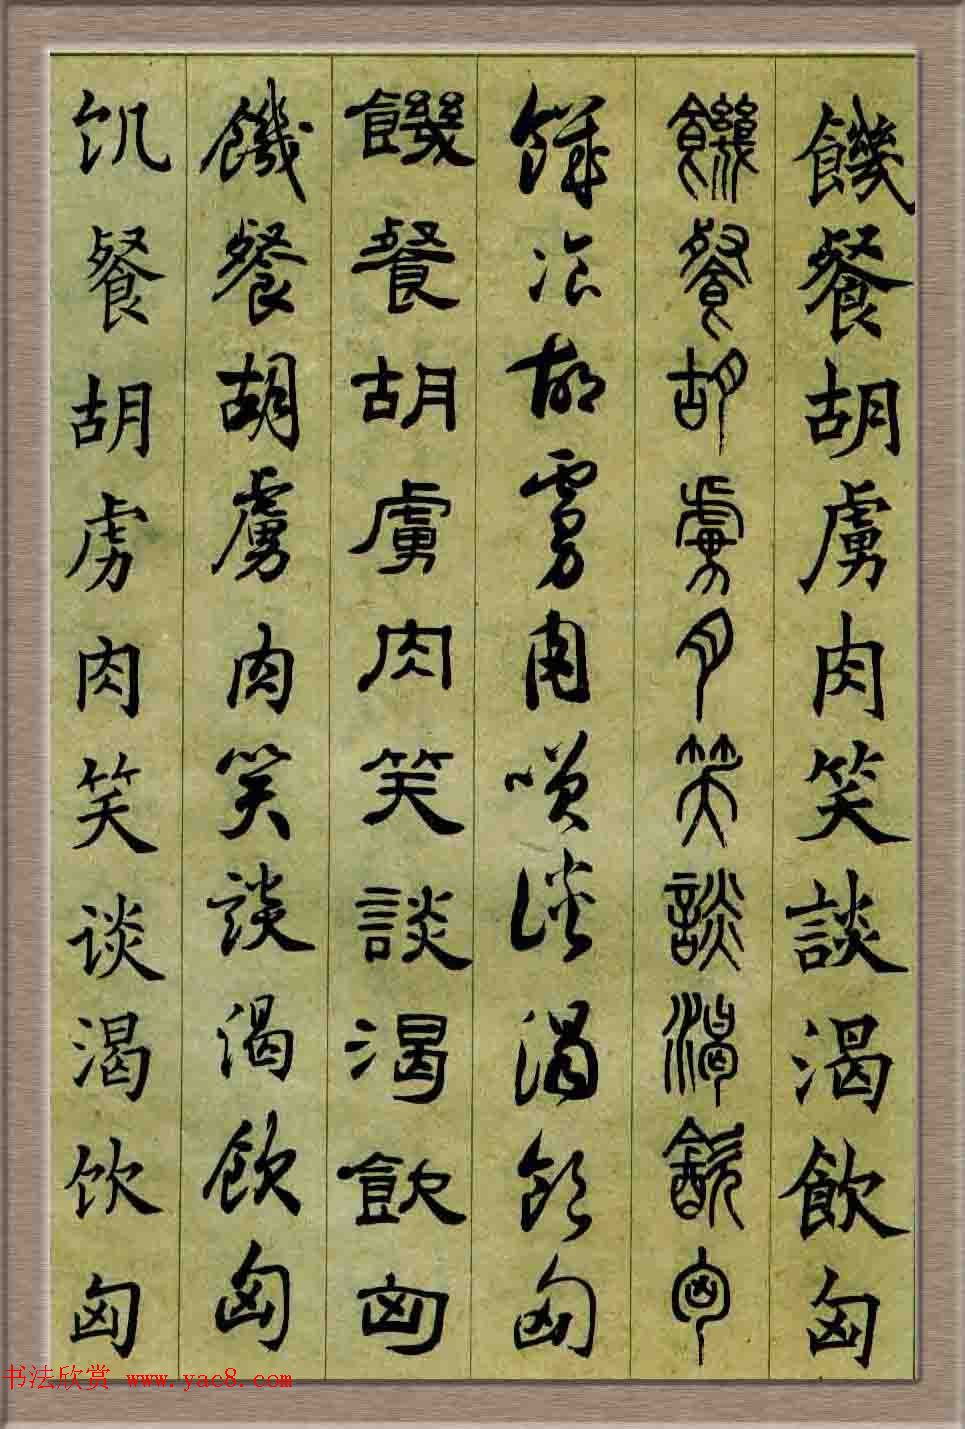 饑餐胡虜肉笑談渴飲匈
饑餐胡虜肉笑談渴飲匈
饑餐胡虜肉笑談渴飲匈
饑餐胡虜肉笑談渴飲匈
饑餐胡虜肉笑談渴飲匈
饥餐胡虏肉笑谈渴饮匈
书法欣赏 www.yac8.com